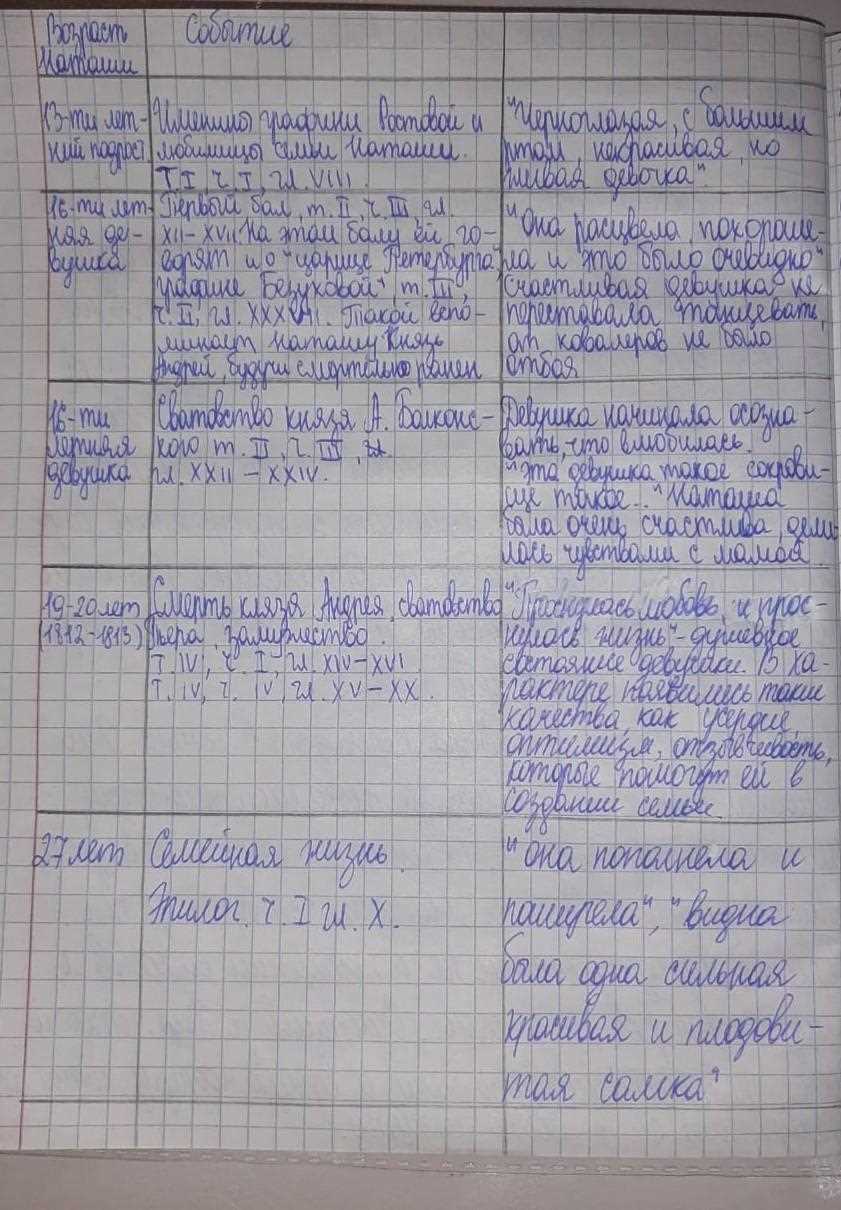 Возраст
Наташи
Событие
13-ти лет-
ний подрост
Именины графини Ростовой и
любимицы семьи Наташи.
Т.I, ч.I, гл. VIII.
"Черноглазая, с большим
ртом, некрасивая, но
живая девочка".
16-ти лет-
няя де-
вушка
Первый бал, т. II, ч. III, гл.
XII-XVII. На этом балу ей го-
ворят и о "царице Петербурга,
графине Безуховой", т. III,
ч. II, гл. XXXVII. Такой вспо-
минает Наташу князь
Андрей, будучи смертельно ранен
"Она расцвела, похороше-
ла и это было очевидно"
счастливая девушка не
переставала танцевать,
от ковалеров не было
отбоя
16-ти
летняя
девушка
Сватовство князя А. Болконс-
кого т. II, ч. III, гл.
гл. XXII - XXIV.
Девушка начинала осозна-
вать, что влюбилась.
"эта девушка такое сокрови-
ще такое.." Наташа
была очень счастлива, дели-
лась чувствами с мамой.
19-20 лет
(1812-1813)
Смерть князя Андрея, сватовство
Пьера, замужество.
Т. IV, ч. I, гл. XIV-XVI
Т. IV, ч. IV, гл. XV-XX.
"Проснулась любовь, и прос-
нулась жизнь"- душевное
состояние девушки. В ха-
рактере появились такие
качества, как усердие,
оптимизм, отзывчивость,
которые помогут ей в
создании семьи.
27 лет
Семейная жизнь.
Эпилог. ч. I гл. X.
"она пополнела и
поширела", "видна
была одна сильная
красивая и плодови-
тая самка"